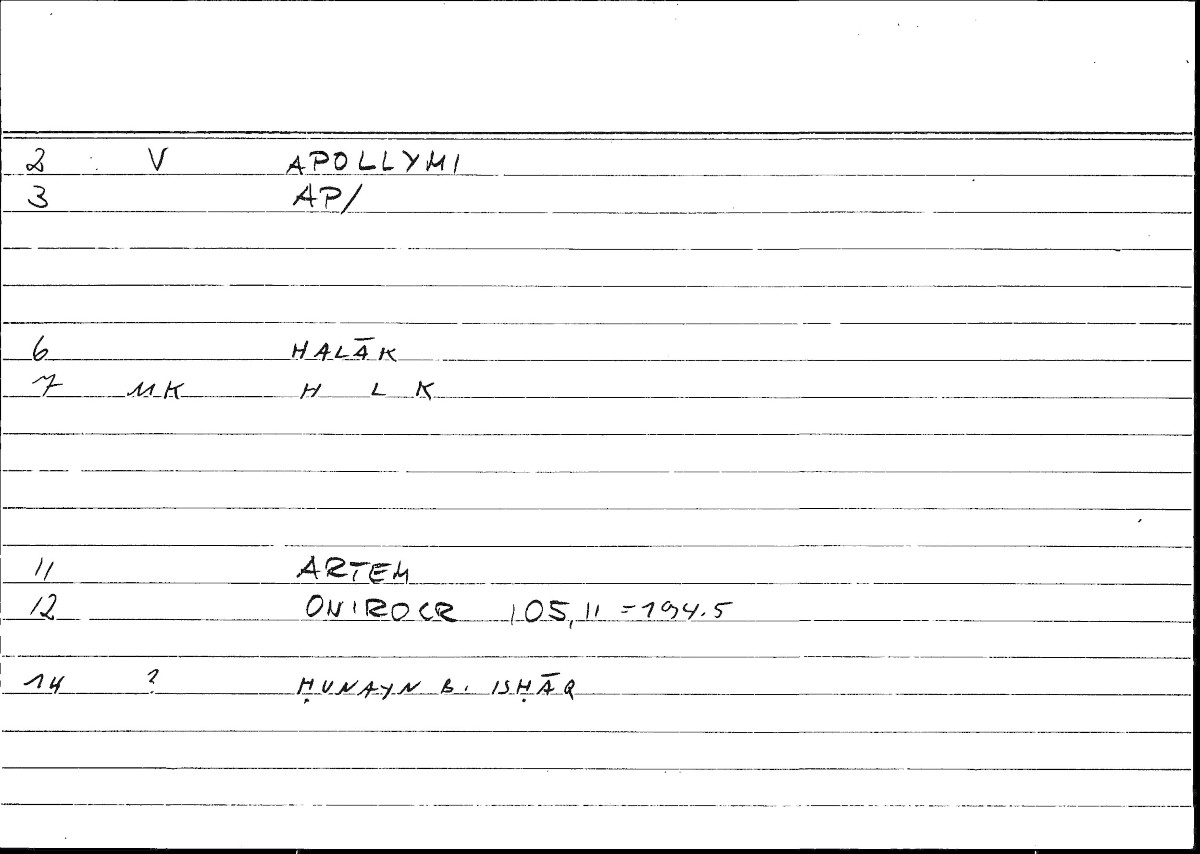 2 V APOLLYMI
3 AP/
6 HALĀK
7 MK H L K
11 ARTEM
12 ONIROCR 105,11 = 194.5
14 ? ḤUNAYN B. ISḤĀQ